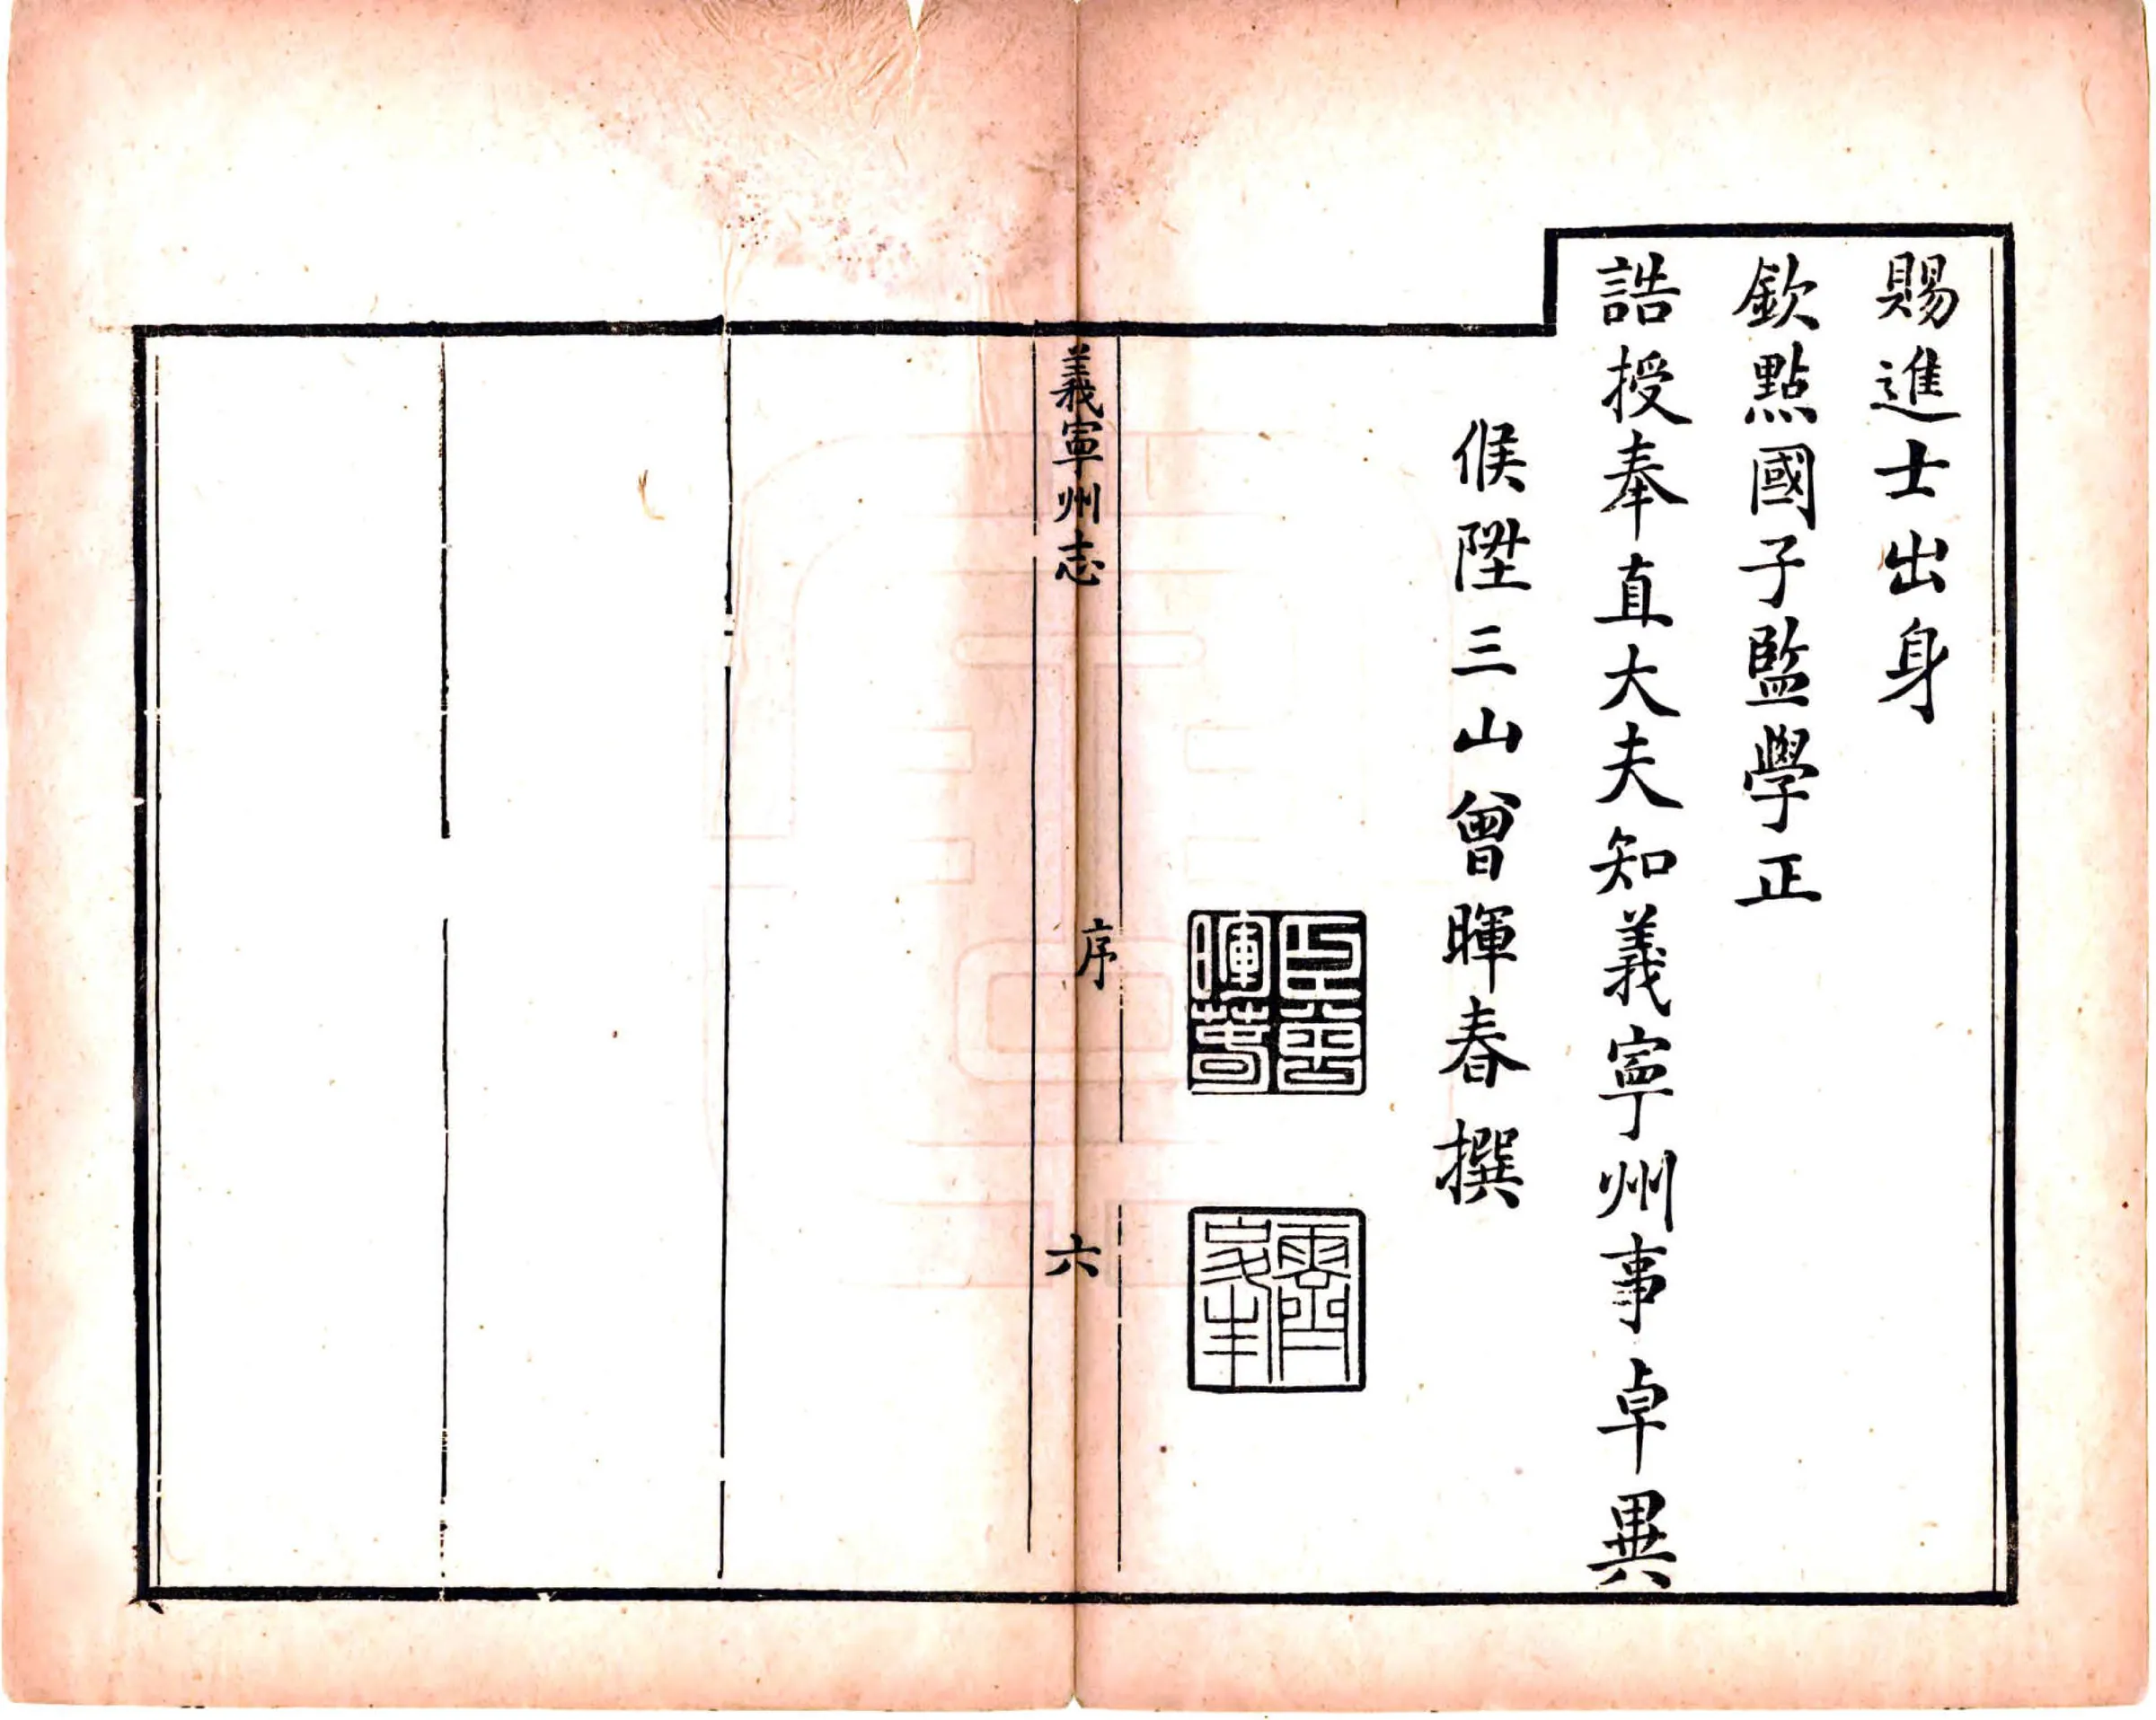 賜進士出身
欽點國子監學正
誥授奉直大夫知義寧州事卓異
候陞三山曾暉春撰
臣曾
暉春
霽峯
義寧州志
序
六